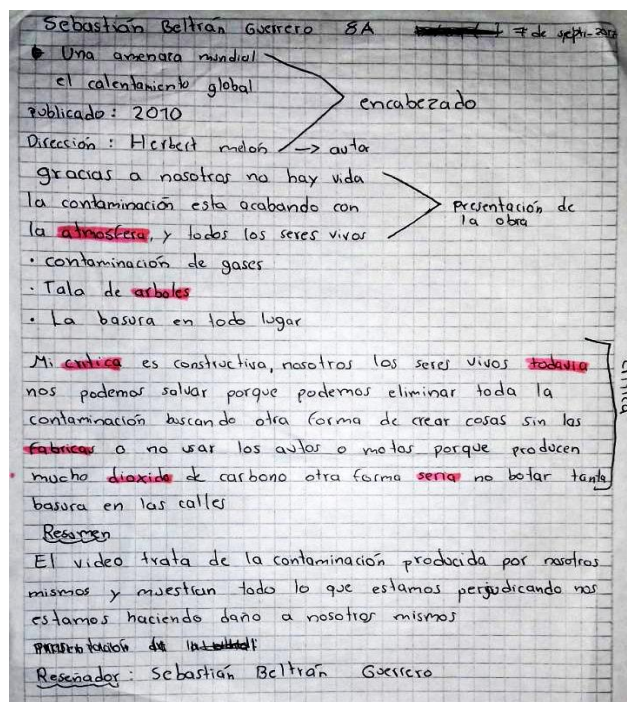 Sebastián Beltrán Guerrero 8A 7 de septi-
Una amenaza mundial
el calentamiento global
encabezado
Publicado: 2010
Dirección: Herbert melón → autor
gracias a nosotros no hay vida
la contaminación esta acabando con
Presentación de
la obra
la atmosfera, y todos los seres vivos
· contaminación de gases
· Tala de arboles
· La basura en todo lugar
Mi critica es constructiva, nosotros los seres vivos todavia
nos podemos salvar porque podemos eliminar toda la
critica
contaminación buscando otra forma de crear cosas sin las
fabricas o no usar los autos o motos porque producen
mucho dioxido de carbono otra forma seria no botar tanta
basura en las calles
Resumen
El video trata de la contaminación producida por nosotros
mismos y muestran todo lo que estamos perjudicando nos
estamos haciendo daño a nosotros mismos
Reseñador: Sebastián Beltrán Guerrero